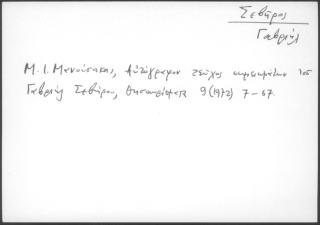 Σεβῆρος
Γαβριήλ
Μ. Ι. Μανούσακας, Αὐτόγραφον τεῦχος σημειωμάτων τοῦ
Γαβριήλ Σεβήρου, Θησαυρίσματα 9 (1972) 7-67.